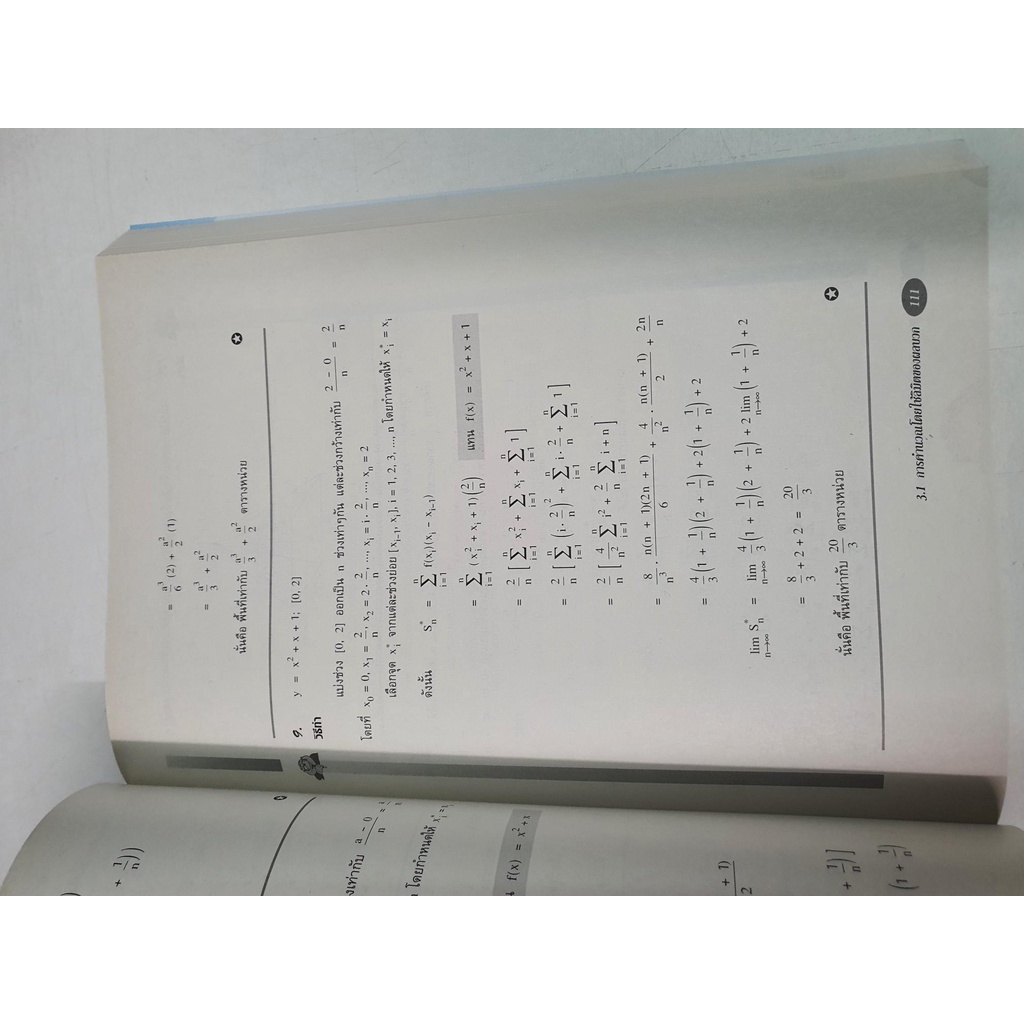 = a³/6 (2) + a²/2 (1)
= a³/3 + a²/2
นั่นคือ พื้นที่เท่ากับ a³/3 + a²/2 ตารางหน่วย
9. y = x² + x + 1; [0, 2]
วิธีทำ
แบ่งช่วง [0, 2] ออกเป็น n ช่วงเท่าๆกัน แต่ละช่วงกว้างเท่ากับ (2 − 0)/n = 2/n
โดยที่ x₀ = 0, x₁ = 2/n, x₂ = 2·2/n, ..., xᵢ = i·2/n, ..., xₙ = 2
เลือกจุด xᵢ* จากแต่ละช่วงย่อย [xᵢ₋₁, xᵢ], i = 1, 2, 3, ..., n โดยกำหนดให้ xᵢ* = xᵢ
ดังนั้น Sₙ* = Σᵢ₌₁ⁿ f(xᵢ)(xᵢ − xᵢ₋₁)
= Σᵢ₌₁ⁿ (xᵢ² + xᵢ + 1)(2/n) แทน f(x) = x² + x + 1
= 2/n [Σᵢ₌₁ⁿ xᵢ² + Σᵢ₌₁ⁿ xᵢ + Σᵢ₌₁ⁿ 1]
= 2/n [Σᵢ₌₁ⁿ (i·2/n)² + Σᵢ₌₁ⁿ i·2/n + Σᵢ₌₁ⁿ 1]
= 2/n [4/n² Σᵢ₌₁ⁿ i² + 2/n Σᵢ₌₁ⁿ i + n]
= 8/n³ · n(n + 1)(2n + 1)/6 + 4/n² · n(n + 1)/2 + 2n/n
= 4/3 (1 + 1/n)(2 + 1/n) + 2(1 + 1/n) + 2
lim n→∞ Sₙ* = lim n→∞ 4/3 (1 + 1/n)(2 + 1/n) + 2 lim n→∞ (1 + 1/n) + 2
= 8/3 + 2 + 2 = 20/3
นั่นคือ พื้นที่เท่ากับ 20/3 ตารางหน่วย
3.1 การคำนวณโดยใช้ลิมิตของผลบวก 111
+ 1/n))
เท่ากับ (a − 0)/n =
โดยกำหนดให้ xᵢ* =
f(x) = x² + x
+ 1)/2
+ 1/n)]
(1 + 1/n)